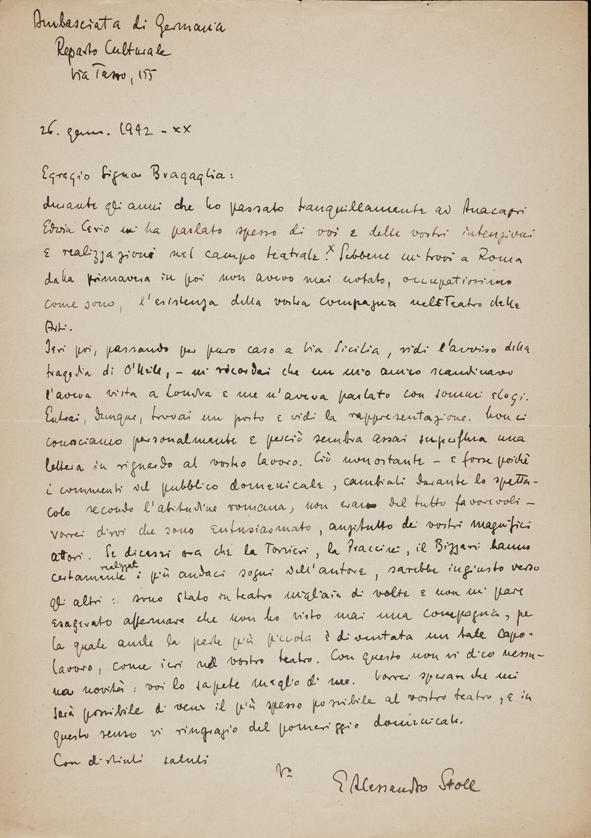 Ambasciata di Germania
Reparto Culturale
Via Tasso, 155
26. genn. 1942 - XX
Egregio Signor Bragaglia:
durante gli anni che ho passato tranquillamente ad Anacapri
Edwin Cerio mi ha parlato spesso di voi e delle vostri intenzioni
e realizzazioni nel campo teatrale. Sebbene mi trovi a Roma
dalla primavera in poi non avevo mai notato, occupatissimo
come sono, l'esistenza della vostra compagnia nel Teatro delle
Arti.
Ieri poi, passando per puro caso a Via Sicilia, vidi l'avviso della
tragedia di O'Neill, - mi ricordai che un mio amico scandinavo
l'aveva vista a Londra e me n'aveva parlato con sommi elogi.
Entrai, dunque, trovai un posto e vidi la rappresentazione. Non ci
conosciamo personalmente e perciò sembra assai superflua una
lettera in riguardo al vostro lavoro. Ciò nonostante - e forse poichè
i commenti del pubblico domenicale, cambiati durante lo spetta-
colo secondo l'abitudine romana, non erano del tutto favorevoli -
vorrei dirvi che sono entusiasmato, anzitutto dei vostri magnifici
attori. Se dicessi ora che la Torrieri, la Fraccini, il Bizzari hanno
certamente realizzati i più audaci sogni dell'autore, sarebbe ingiusto verso
gli altri: sono stato in teatro migliaia di volte e non mi pare
esagerato affermare che non ho visto mai una compagnia, pe
la quale anche la parte più piccola è diventata un tale capo-
lavoro, come ieri nel vostro teatro. Con questo non vi dico nessu-
na novità: voi lo sapete meglio di me. Vorrei sperare che mi
sarà possibile di venir il più spesso possibile al vostro teatro, e in
questo senso vi ringrazio del pomeriggio domenicale.
Con distinti saluti
Vo
E Alessandro Stoll